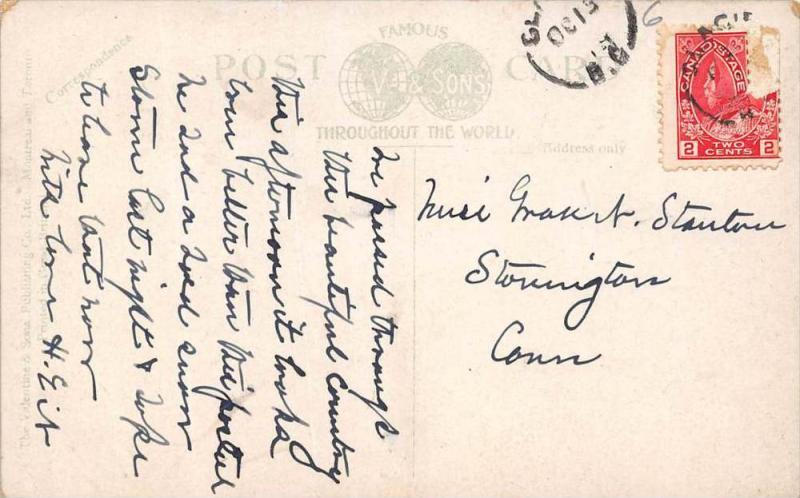 FAMOUS
POST CARD
V & SONS
THROUGHOUT THE WORLD
Correspondence
Address only
The Valentine & Sons Publishing Co., Ltd., Montreal and Toronto
Printed in Great
We passed through
this beautiful country
this afternoon it looks
even better than this postal
We had a snow
Storm last night & hope
to leave that now
With love H.
Miss N. Stanton
Stonington
Conn
CANADA POSTAGE
2 TWO CENTS 2
OC 13
6